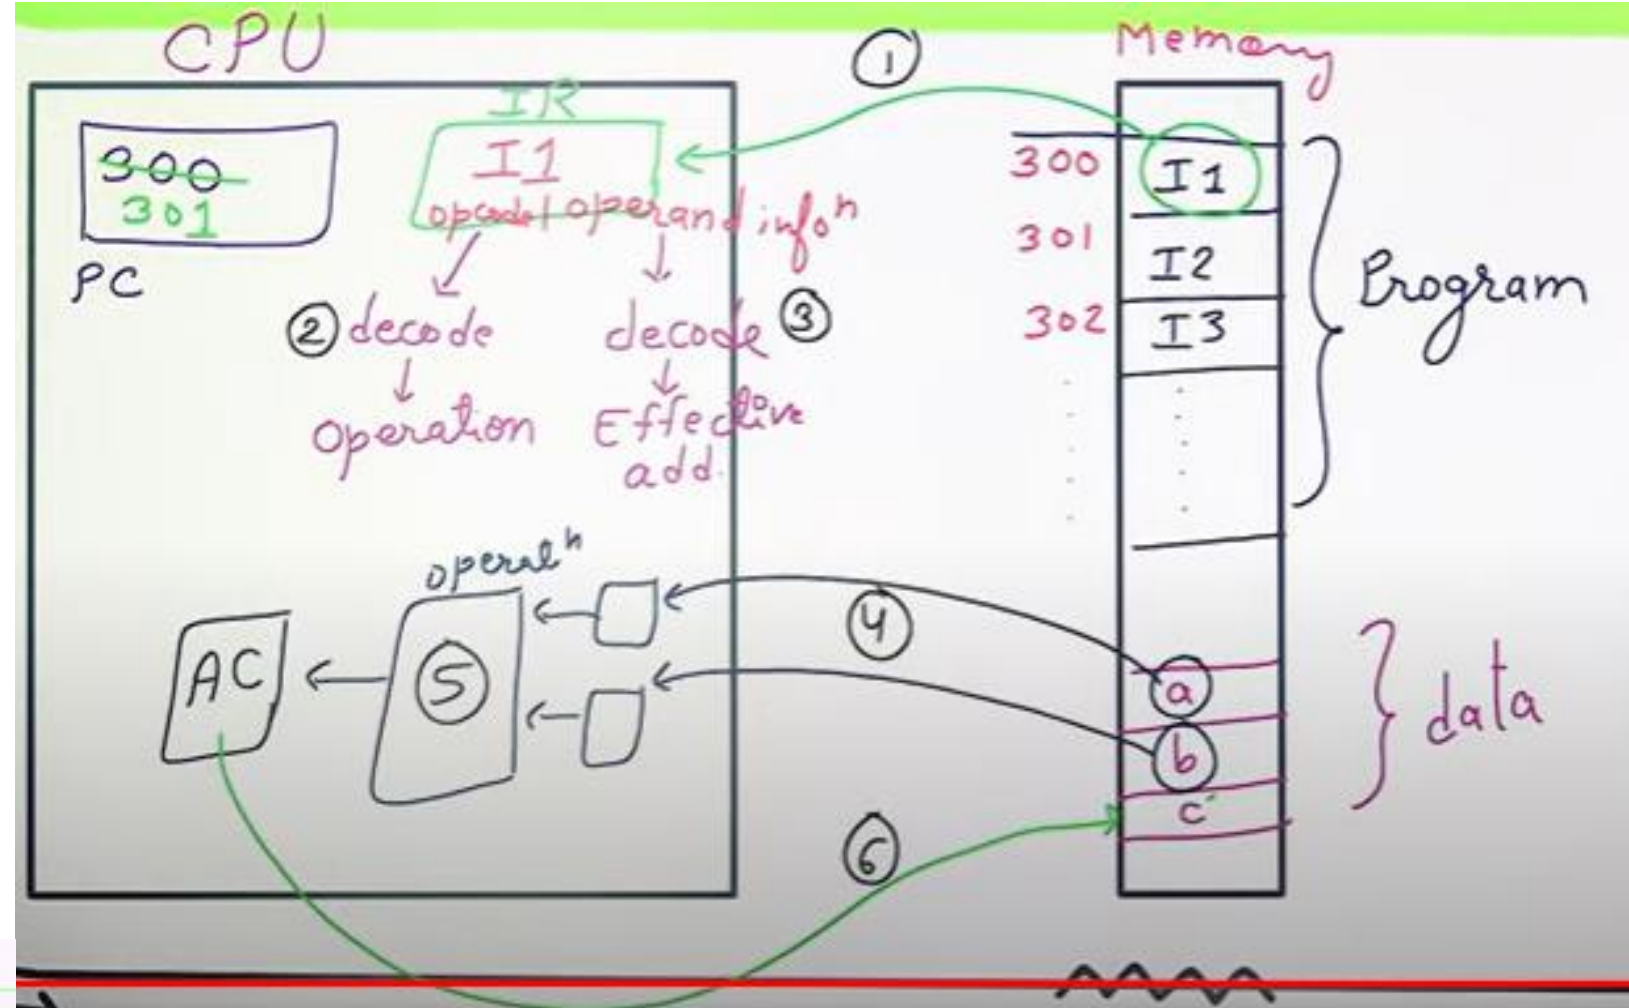 CPU
Memory
①
IR
300
301
PC
I1
opcode | operand infoⁿ
② decode
decode ③
operation
Effective
add.
300 I1
301 I2
302 I3
Program
operatⁿ
AC
⑤
④
a
b
c
data
⑥